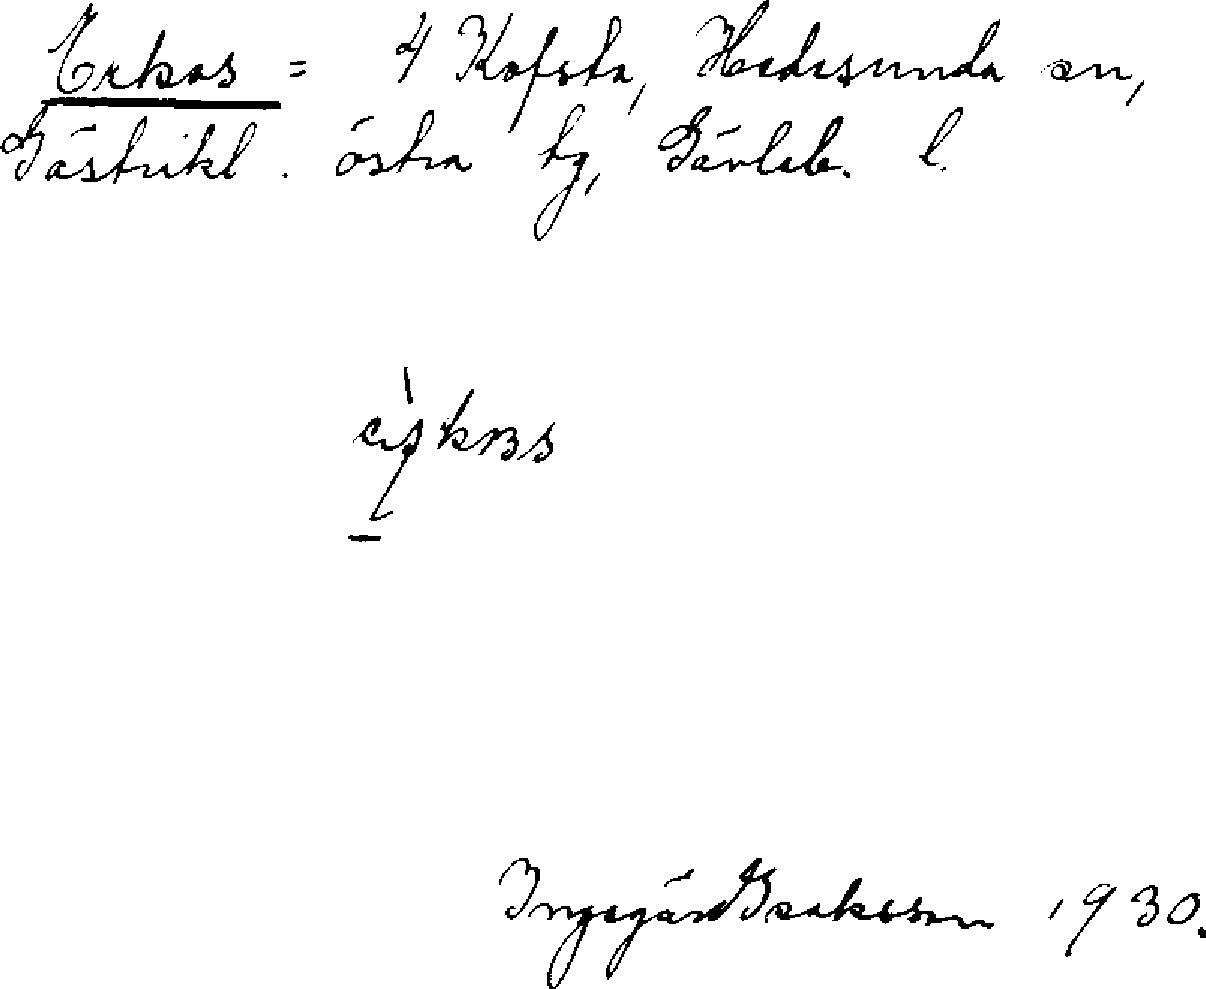 Erkas = 4 Kofsta, Hedesunda sn,
Gästrikl. östra tg, Gävleb. l.
Ingegärd Isaksson 1930.